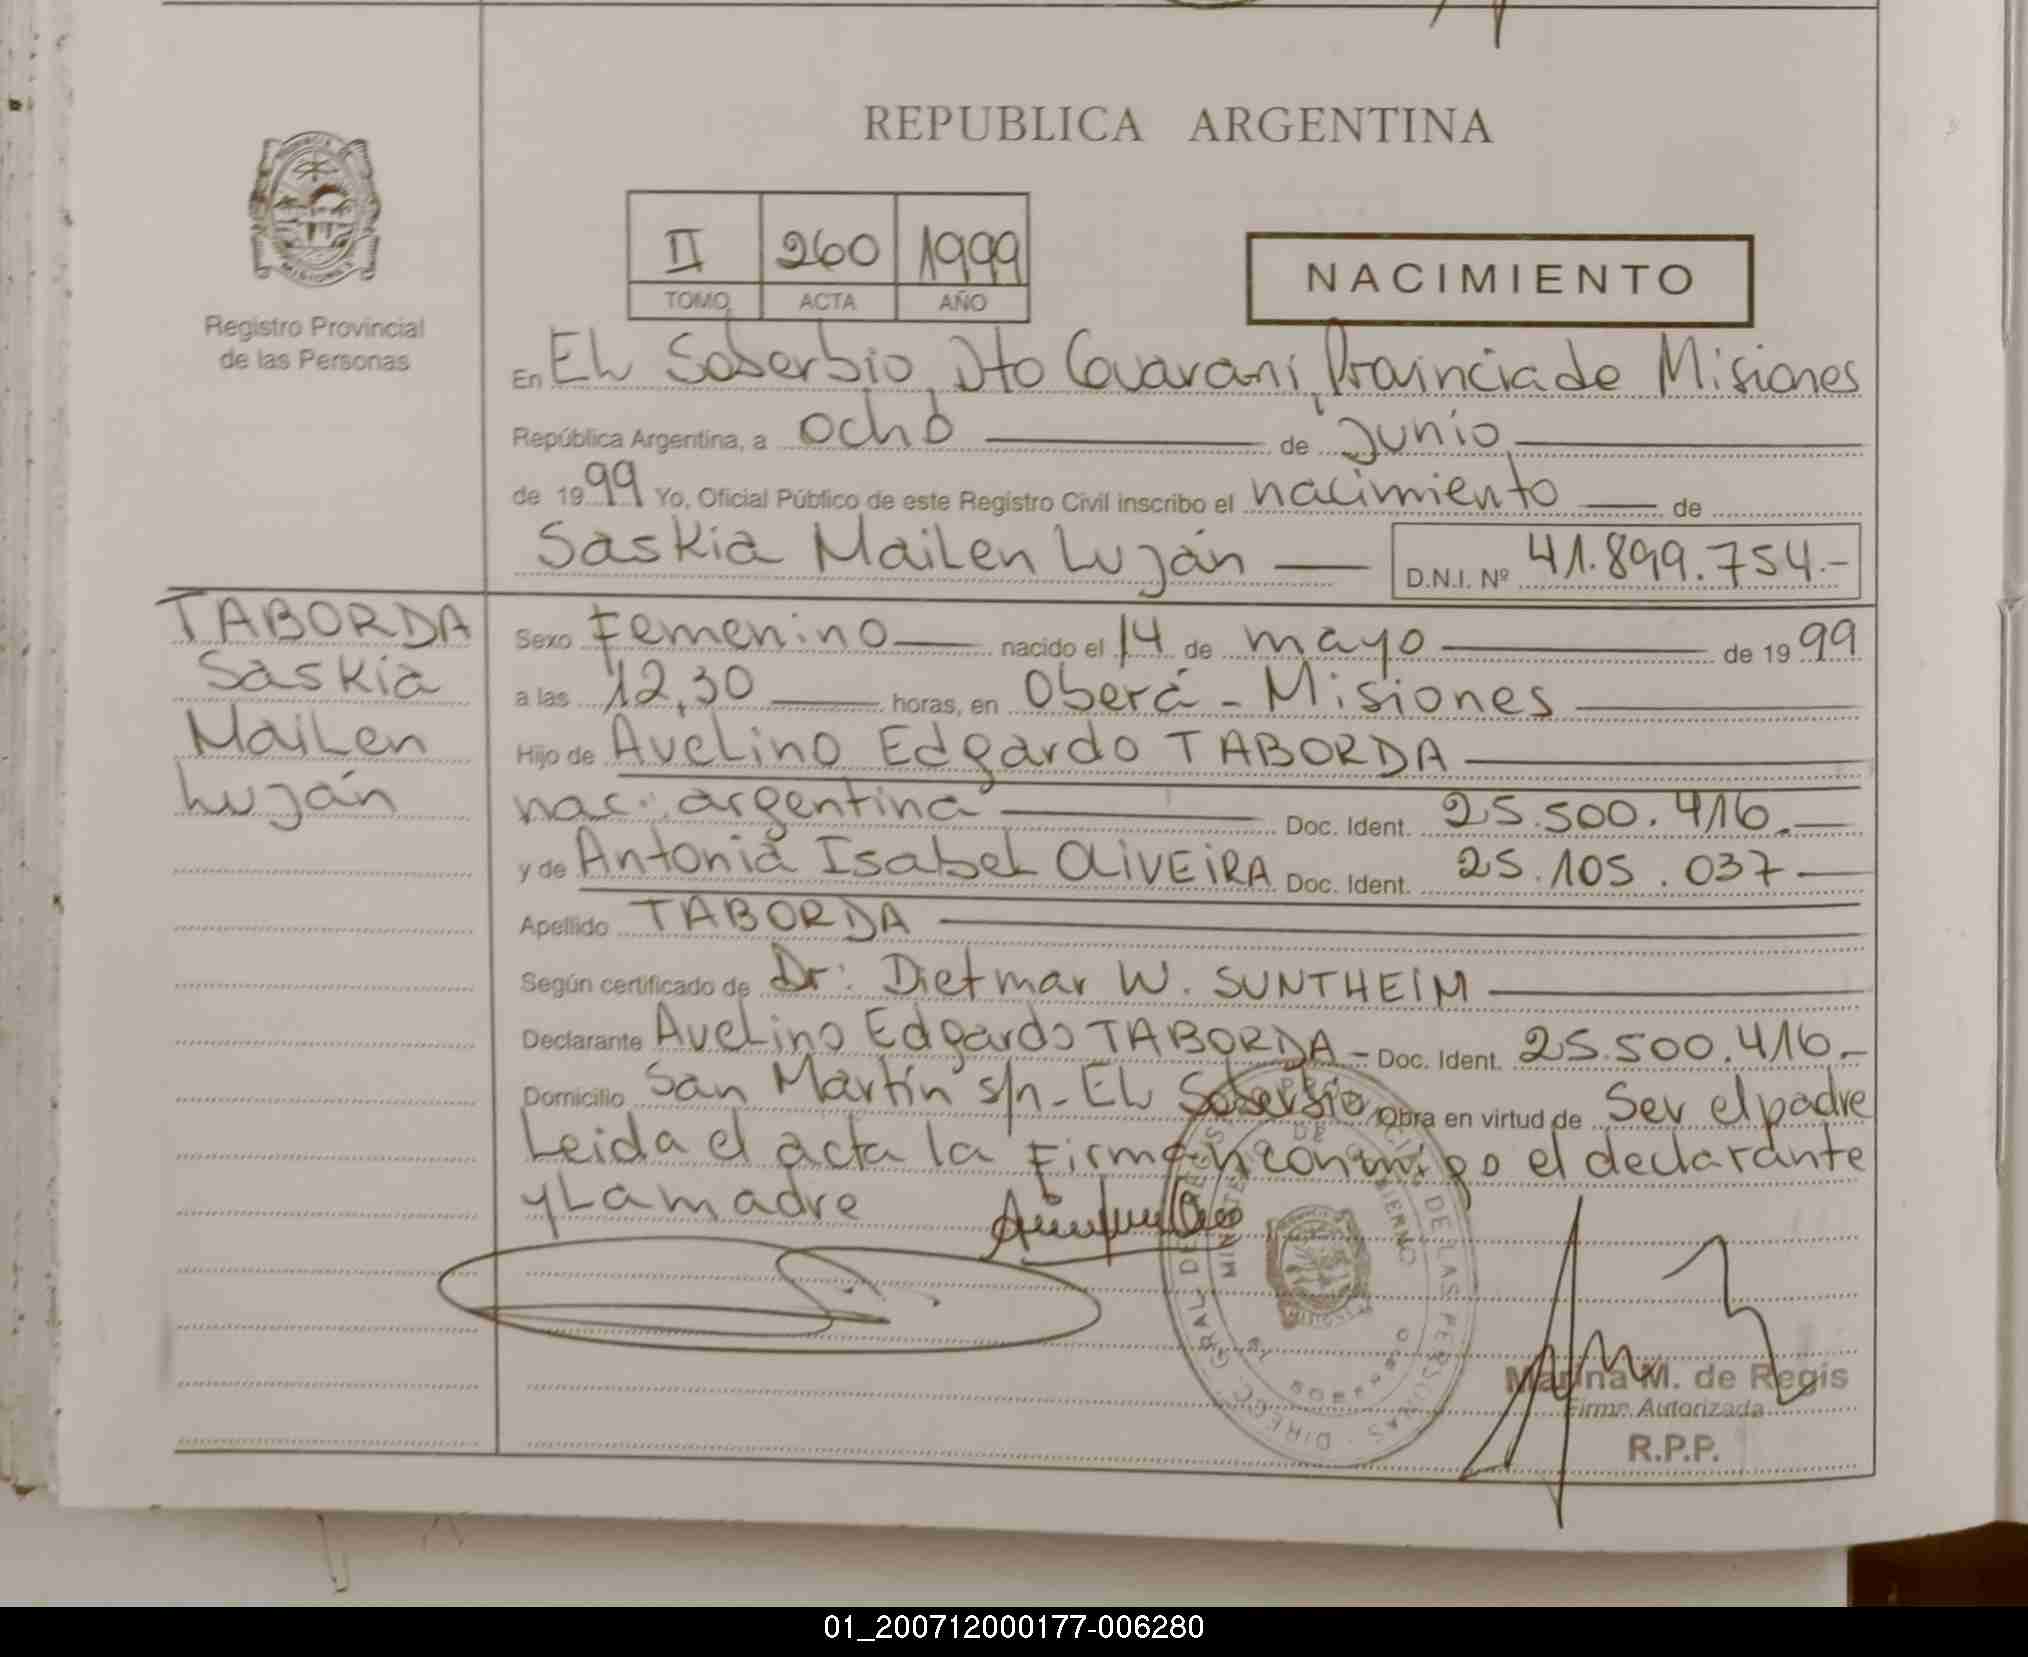 REPUBLICA ARGENTINA
II 260 1999
TOMO ACTA AÑO
NACIMIENTO
Registro Provincial
de las Personas
En EL Soberbio, Dto Guaraní, Provincia de Misiones
República Argentina, a ocho de junio
de 1999 Yo, Oficial Público de este Registro Civil inscribo el nacimiento de
Saskia Mailen Luján D.N.I. Nº 41.899.754.-
TABORDA
Saskia
Mailen
Luján
Sexo Femenino nacido el 14 de mayo de 1999
a las 12,30 horas, en Oberá - Misiones
Hijo de Avelino Edgardo TABORDA
nac. argentina Doc. Ident. 25.500.416.
y de Antonia Isabel OLIVEIRA Doc. Ident. 25.105.037
Apellido TABORDA
Según certificado de Dr: Dietmar W. SUNTHEIM
Declarante Avelino Edgardo TABORDA - Doc. Ident. 25.500.416.-
Domicilio San Martín s/n - EL Soberbio Obra en virtud de Ser el padre
Leida el acta la Firman conmigo el declarante
y La madre
DIRECC. GRAL. DE REG. PROVINCIAL DE LAS PERSONAS
MINISTERIO DE GOBIERNO
EL SOBERBIO
MISIONES
Marina M. de Regis
Firma Autorizada
R.P.P.
01_200712000177-006280